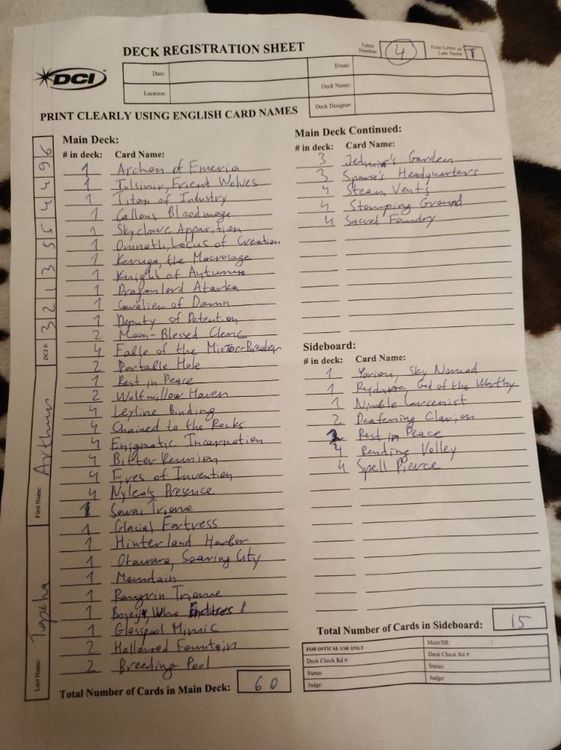 DECK REGISTRATION SHEET
Table Number
4
First Letter of Last Name
T
DCI
Date:
Event:
Location:
Deck Name:
Deck Designer
PRINT CLEARLY USING ENGLISH CARD NAMES
Main Deck:
# in deck: Card Name:
1 Archon of Emeria
1 Tolsimir, Friend Wolves
1 Titan of Industry
1 Callous Bloodmage
1 Skyclave Apparition
1 Omnath, Locus of Creation
1 Keruga, the Macrosage
1 Knight of Autumn
1 Dragonlord Atarka
1 Cavalier of Dawn
1 Deputy of Detention
2 Moon-Blessed Cleric
4 Fable of the Mirror-Breaker
2 Portable Hole
1 Rest in Peace
2 Wolfwillow Haven
4 Leyline Binding
4 Chained to the Rocks
4 Enigmatic Incarnation
4 Bitter Reunion
4 Fires of Invention
4 Nylea's Presence
1 Savai Triome
1 Glacial Fortress
1 Hinterland Harbor
1 Otawara, Soaring City
1 Mountain
1 Raugrin Triome
1 Boseiju, Who Endures
1 Glasspool Mimic
2 Hallowed Fountain
2 Breeding Pool
Total Number of Cards in Main Deck: 60
Main Deck Continued:
# in deck: Card Name:
3 Jetmir's Garden
3 Spara's Headquarters
4 Steam Vents
4 Stomping Ground
4 Sacred Foundry
Sideboard:
# in deck: Card Name:
1 Yorion, Sky Nomad
1 God of the Worthy
1 Nimble Larcenist
2 Deafening Clarion
Rest in Peace
4 Rending Volley
4 Spell Pierce
Total Number of Cards in Sideboard: 15
FOR OFFICAL USE ONLY
Main/SB:
Deck Check Rd #:
Deck Check Rd #:
Status:
Status:
Judge:
Judge:
Last Name:
First Name: Arthur
DCI#
3 2 1 3 5 5 4 4 9 6